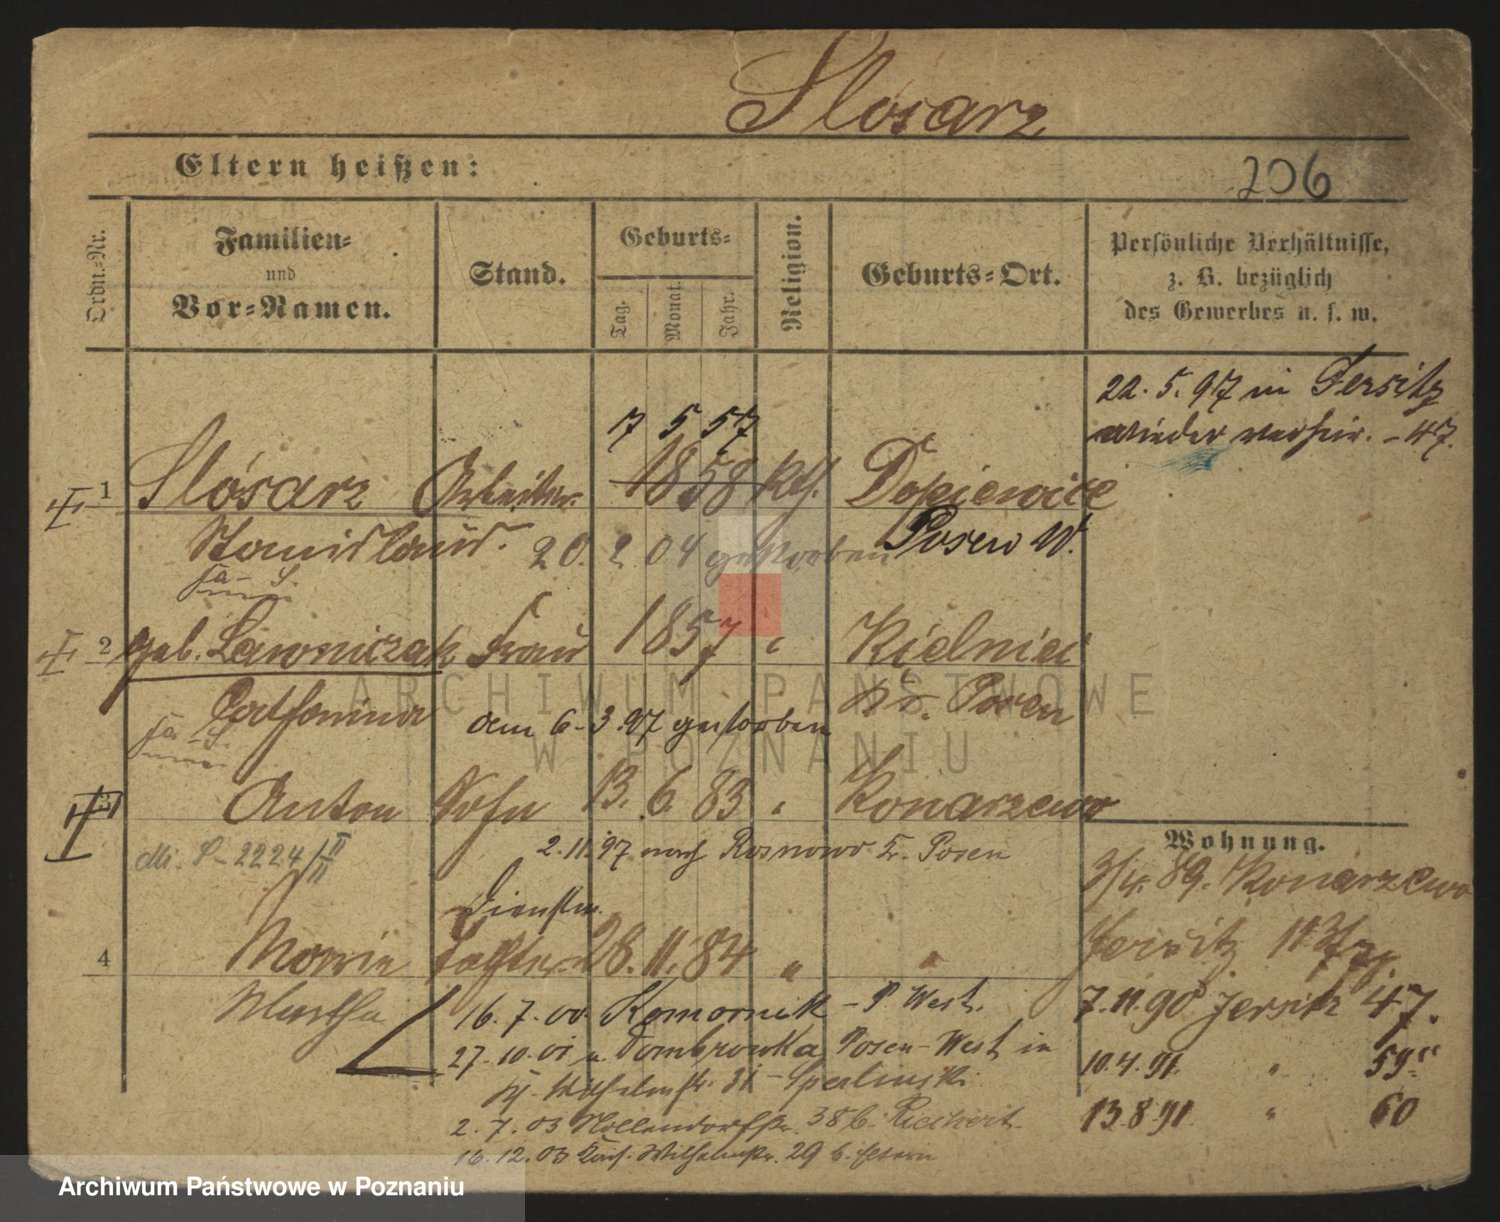 Slósarz
Eltern heißen:
206
Ordn.-Nr.
Familien-
und
Vor-Namen.
Stand.
Geburts-
Tag.
Monat.
Jahr.
Religion.
Geburts-Ort.
Persönliche Verhältnisse,
z. B. bezüglich
des Gewerbes u. s. w.
22. 5. 97 in Jersitz
wieder verheir. - 47.
17 5 57
1 Slósarz Arbeiter 1858 kth. Dopiewice
Stanislaus. 20. 2. 04 gestorben Posen W.
2 geb. Lawniczak Frau 1857 " Kielnici
Catharina am 6. 3. 97 gestorben Kr. Posen
3 Anton Sohn 13. 6. 83 " Konarzewo
2. 11. 97 nach Rosnowo Kr. Posen
Wohnung.
3/4. 89. Konarzewo
Dienstm.
4 Marie Tochter 28. 11. 84 " "
Jersitz
Martha
16. 7. 00 Komornik - P. West.
7. 11. 90 Jersitz 47.
27. 10. 01 v. Dombrowka Posen-West in
10. 4. 91. " 59
Wilhelmstr. 31 -
13. 8. 91. " 60
2. 7. 03 38 b.
16. 12. 03 Wilhelmstr. 29 b. Eltern
ARCHIWUM PAŃSTWOWE
W POZNANIU
Archiwum Państwowe w Poznaniu